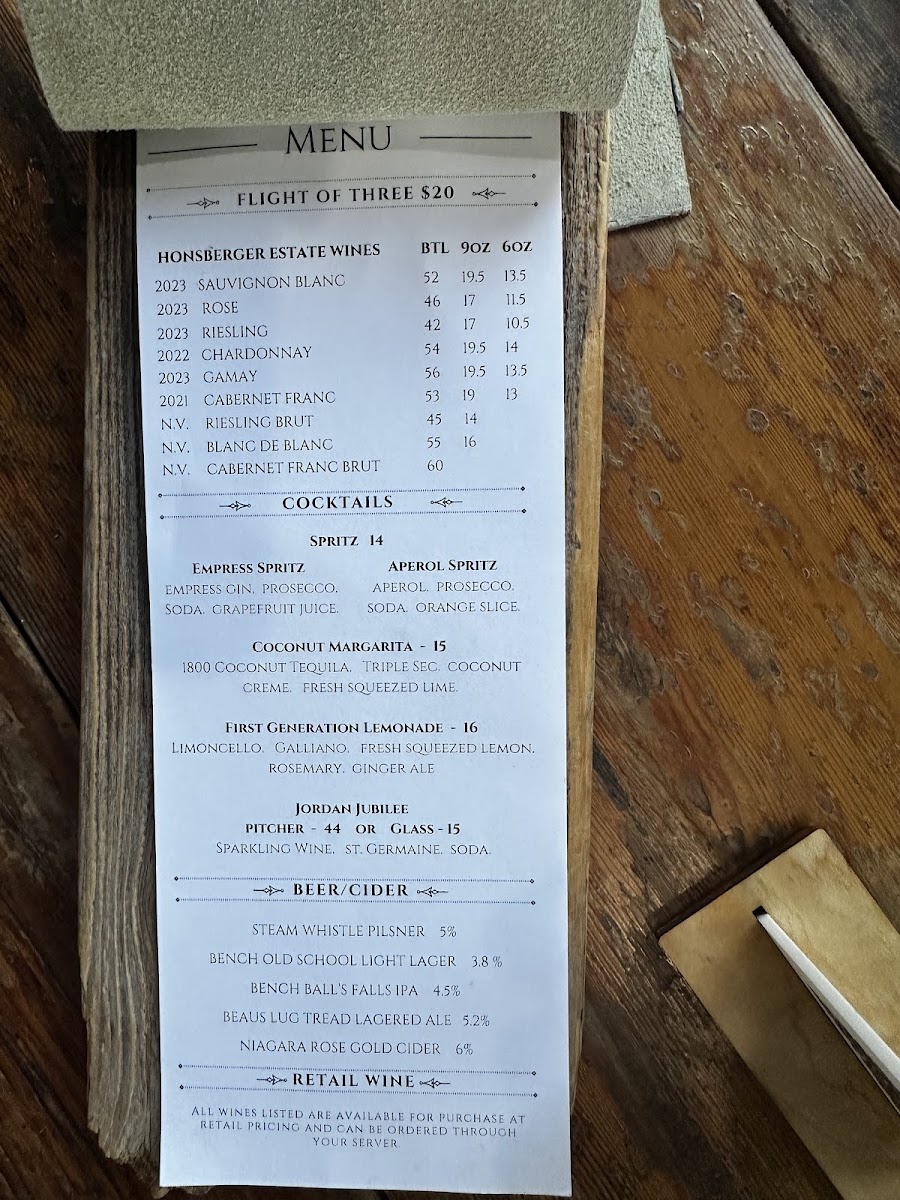 MENU
FLIGHT OF THREE $20
HONSBERGER ESTATE WINES BTL 9OZ 6OZ
2023 SAUVIGNON BLANC 52 19.5 13.5
2023 ROSE 46 17 11.5
2023 RIESLING 42 17 10.5
2022 CHARDONNAY 54 19.5 14
2023 GAMAY 56 19.5 13.5
2021 CABERNET FRANC 53 19 13
N.V. RIESLING BRUT 45 14
N.V. BLANC DE BLANC 55 16
N.V. CABERNET FRANC BRUT 60
COCKTAILS
SPRITZ 14
EMPRESS SPRITZ
EMPRESS GIN, PROSECCO,
SODA, GRAPEFRUIT JUICE.
APEROL SPRITZ
APEROL, PROSECCO,
SODA, ORANGE SLICE.
COCONUT MARGARITA - 15
1800 COCONUT TEQUILA, TRIPLE SEC, COCONUT
CREME, FRESH SQUEEZED LIME.
FIRST GENERATION LEMONADE - 16
LIMONCELLO, GALLIANO, FRESH SQUEEZED LEMON,
ROSEMARY, GINGER ALE
JORDAN JUBILEE
PITCHER - 44 OR GLASS - 15
SPARKLING WINE, ST. GERMAINE, SODA.
BEER/CIDER
STEAM WHISTLE PILSNER 5%
BENCH OLD SCHOOL LIGHT LAGER 3.8 %
BENCH BALL'S FALLS IPA 4.5%
BEAUS LUG TREAD LAGERED ALE 5.2%
NIAGARA ROSE GOLD CIDER 6%
RETAIL WINE
ALL WINES LISTED ARE AVAILABLE FOR PURCHASE AT
RETAIL PRICING AND CAN BE ORDERED THROUGH
YOUR SERVER.